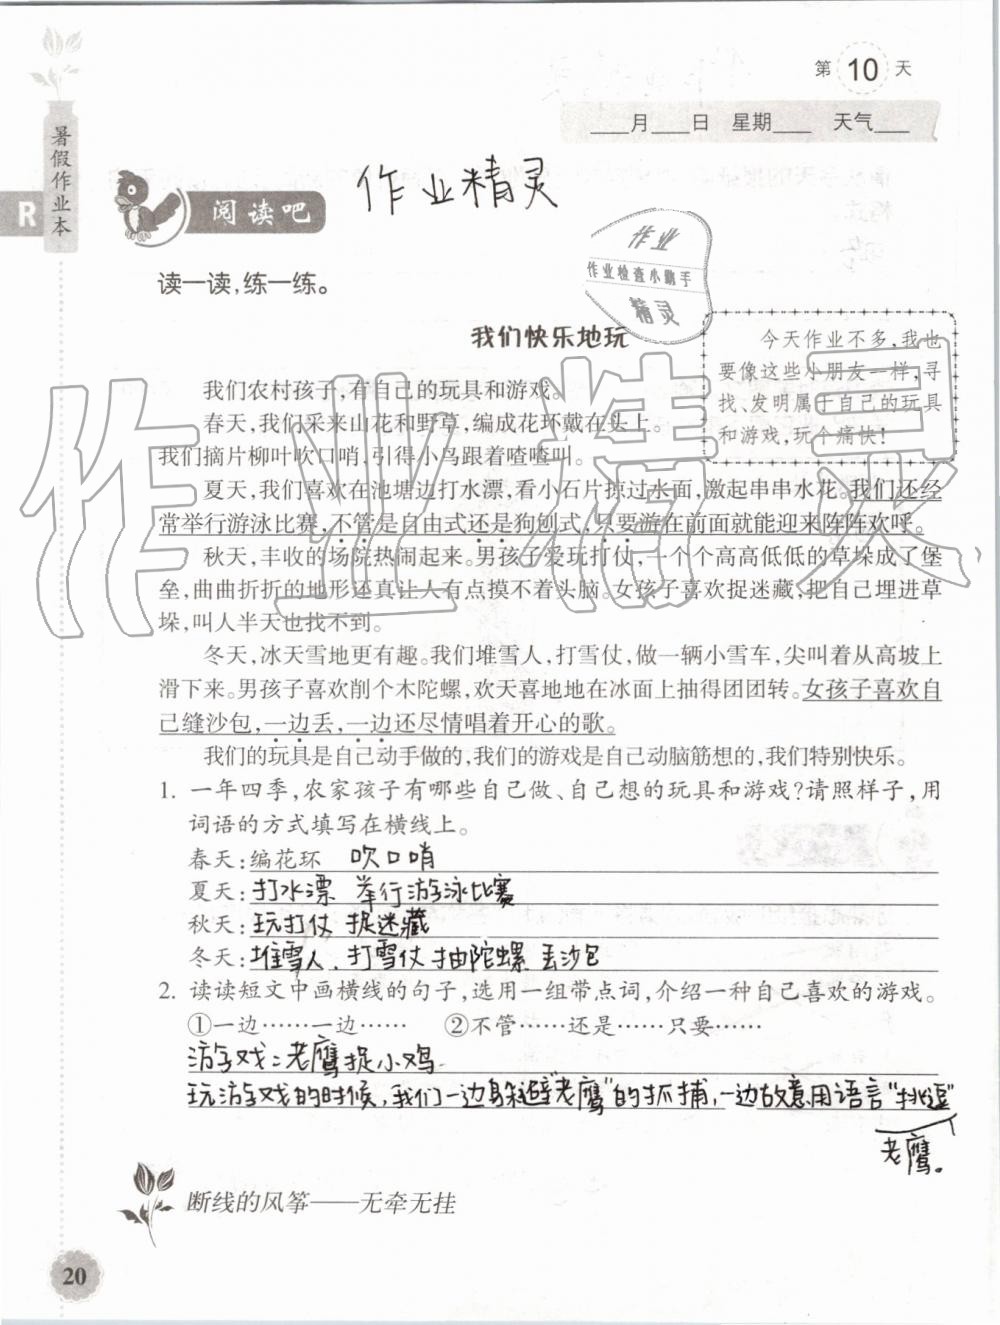 第 10 天
____月____日 星期____ 天气____
暑假作业本
R
作业精灵
阅读吧
作业
作业检查小助手
精灵
读一读,练一练。
我们快乐地玩
今天作业不多,我也
要像这些小朋友一样,寻
找、发明属于自己的玩具
和游戏,玩个痛快!
我们农村孩子,有自己的玩具和游戏。
春天,我们采来山花和野草,编成花环戴在头上。
我们摘片柳叶吹口哨,引得小鸟跟着喳喳叫。
夏天,我们喜欢在池塘边打水漂,看小石片掠过水面,激起串串水花。我们还经
常举行游泳比赛,不管是自由式还是狗刨式,只要游在前面就能迎来阵阵欢呼。
秋天,丰收的场院热闹起来。男孩子爱玩打仗,一个个高高低低的草垛成了堡
垒,曲曲折折的地形还真让人有点摸不着头脑。女孩子喜欢捉迷藏,把自己埋进草
垛,叫人半天也找不到。
冬天,冰天雪地更有趣。我们堆雪人,打雪仗,做一辆小雪车,尖叫着从高坡上
滑下来。男孩子喜欢削个木陀螺,欢天喜地地在冰面上抽得团团转。女孩子喜欢自
己缝沙包,一边丢,一边还尽情唱着开心的歌。
我们的玩具是自己动手做的,我们的游戏是自己动脑筋想的,我们特别快乐。
1. 一年四季,农家孩子有哪些自己做、自己想的玩具和游戏?请照样子,用
词语的方式填写在横线上。
春天:编花环 吹口哨
夏天:打水漂 举行游泳比赛
秋天:玩打仗 捉迷藏
冬天:堆雪人、打雪仗 抽陀螺 丢沙包
2. 读读短文中画横线的句子,选用一组带点词,介绍一种自己喜欢的游戏。
①一边……一边…… ②不管……还是……只要……
游戏:老鹰捉小鸡
玩游戏的时候,我们一边躲避“老鹰”的抓捕,一边故意用语言“挑逗”
老鹰。
断线的风筝——无牵无挂
20
作业精灵